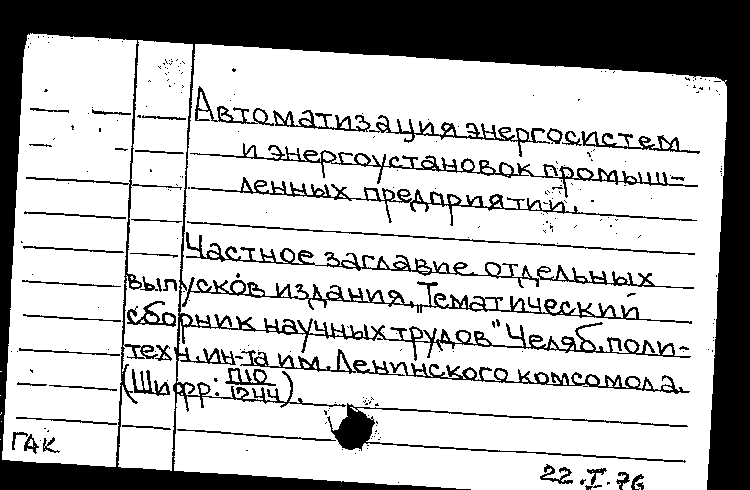 Автоматизация энергосистем
и энергоустановок промыш-
ленных предприятий.
Частное заглавие отдельных
выпусков издания „Тематический
сборник научных трудов" Челяб. поли-
техн. ин-та им. Ленинского комсомола.
(Шифр: П10
1244).
ГАК
22.I.76